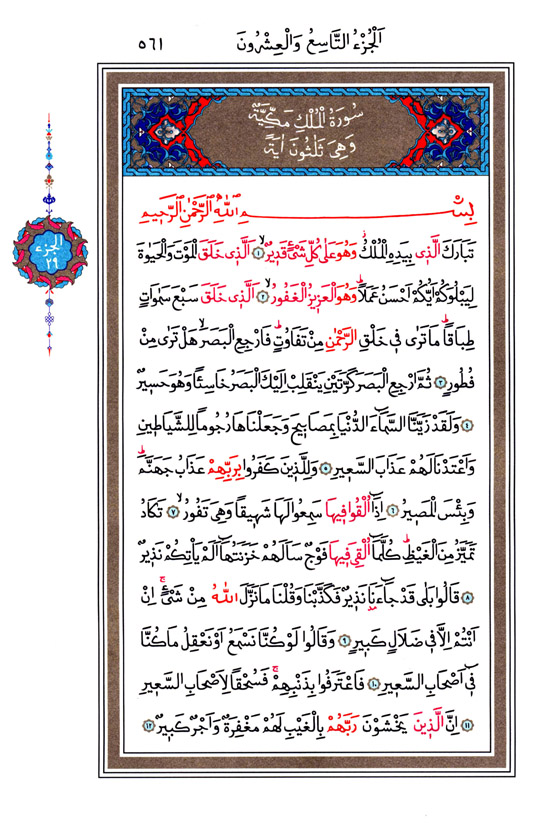 اَلْجُزْءُ التَّاسِعُ وَالْعِشْرُونَ
٥٦١
سُورَةُ الْمُلْكِ مَكِّيَّةٌ
وَهِيَ ثَلٰثُونَ اٰيَةً
الجزء
٢٩
بِسْمِ اللّٰهِ الرَّحْمٰنِ الرَّحِيمِ
تَبَارَكَ الَّذِي بِيَدِهِ الْمُلْكُ وَهُوَ عَلٰى كُلِّ شَيْءٍ قَدِيرٌ ﴿١﴾ اَلَّذِي خَلَقَ الْمَوْتَ وَالْحَيٰوةَ
لِيَبْلُوَكُمْ اَيُّكُمْ اَحْسَنُ عَمَلاً وَهُوَ الْعَزِيزُ الْغَفُورُ ﴿٢﴾ اَلَّذِي خَلَقَ سَبْعَ سَمٰوَاتٍ
طِبَاقاً مَا تَرٰى فِي خَلْقِ الرَّحْمٰنِ مِنْ تَفَاوُتٍ فَارْجِعِ الْبَصَرَ هَلْ تَرٰى مِنْ
فُطُورٍ ﴿٣﴾ ثُمَّ ارْجِعِ الْبَصَرَ كَرَّتَيْنِ يَنْقَلِبْ اِلَيْكَ الْبَصَرُ خَاسِئاً وَهُوَ حَسِيرٌ
﴿٤﴾ وَلَقَدْ زَيَّنَّا السَّمَاءَ الدُّنْيَا بِمَصَابِيحَ وَجَعَلْنَاهَا رُجُوماً لِلشَّيَاطِينِ
وَاَعْتَدْنَا لَهُمْ عَذَابَ السَّعِيرِ ﴿٥﴾ وَلِلَّذِينَ كَفَرُوا بِرَبِّهِمْ عَذَابُ جَهَنَّمَ
وَبِئْسَ الْمَصِيرُ ﴿٦﴾ اِذَا اُلْقُوا فِيهَا سَمِعُوا لَهَا شَهِيقاً وَهِيَ تَفُورُ ﴿٧﴾ تَكَادُ
تَمَيَّزُ مِنَ الْغَيْظِ كُلَّمَا اُلْقِيَ فِيهَا فَوْجٌ سَاَلَهُمْ خَزَنَتُهَا اَلَمْ يَأْتِكُمْ نَذِيرٌ
﴿٨﴾ قَالُوا بَلٰى قَدْ جَاءَنَا نَذِيرٌ فَكَذَّبْنَا وَقُلْنَا مَا نَزَّلَ اللّٰهُ مِنْ شَيْءٍ اِنْ
اَنْتُمْ اِلَّا فِي ضَلَالٍ كَبِيرٍ ﴿٩﴾ وَقَالُوا لَوْ كُنَّا نَسْمَعُ اَوْ نَعْقِلُ مَا كُنَّا
فِي اَصْحَابِ السَّعِيرِ ﴿١٠﴾ فَاعْتَرَفُوا بِذَنْبِهِمْ فَسُحْقاً لِاَصْحَابِ السَّعِيرِ
﴿١١﴾ اِنَّ الَّذِينَ يَخْشَوْنَ رَبَّهُمْ بِالْغَيْبِ لَهُمْ مَغْفِرَةٌ وَاَجْرٌ كَبِيرٌ ﴿١٢﴾